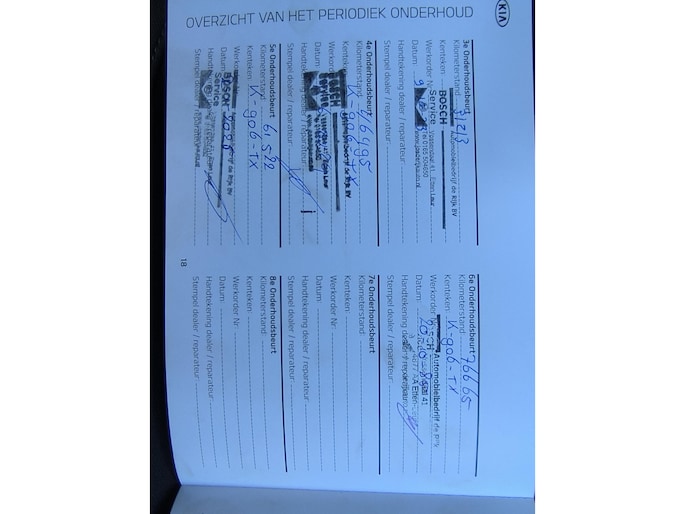 OVERZICHT VAN HET PERIODIEK ONDERHOUD
KIA
3e Onderhoudsbeurt
Kilometerstand: 31213
Kenteken:
Werkorder Nr.
Datum:
Handtekening dealer / reparateur:
Stempel dealer / reparateur:
Automobielbedrijf de Rijk BV
BOSCH
Service
4e Onderhoudsbeurt
Kilometerstand: 46495
Kenteken: K-906-TX
Werkorder
Datum
Handtekening
Stempel dealer / reparateur:
BOSCH
Service
5e Onderhoudsbeurt
Kilometerstand: 61522
Kenteken: K-906-TX
Werkorder
Datum
Handtekening
Stempel dealer / reparateur:
BOSCH
Service
6e Onderhoudsbeurt
Kilometerstand: 76665
Kenteken: K-906-TX
Werkorder
Datum:
Handtekening dealer / reparateur:
Stempel dealer / reparateur:
BOSCH
Automobielbedrijf de Rijk
7e Onderhoudsbeurt
Kilometerstand:
Kenteken:
Werkorder Nr.:
Datum:
Handtekening dealer / reparateur:
Stempel dealer / reparateur:
8e Onderhoudsbeurt
Kilometerstand:
Kenteken:
Werkorder Nr.:
Datum:
Handtekening dealer / reparateur:
Stempel dealer / reparateur:
18